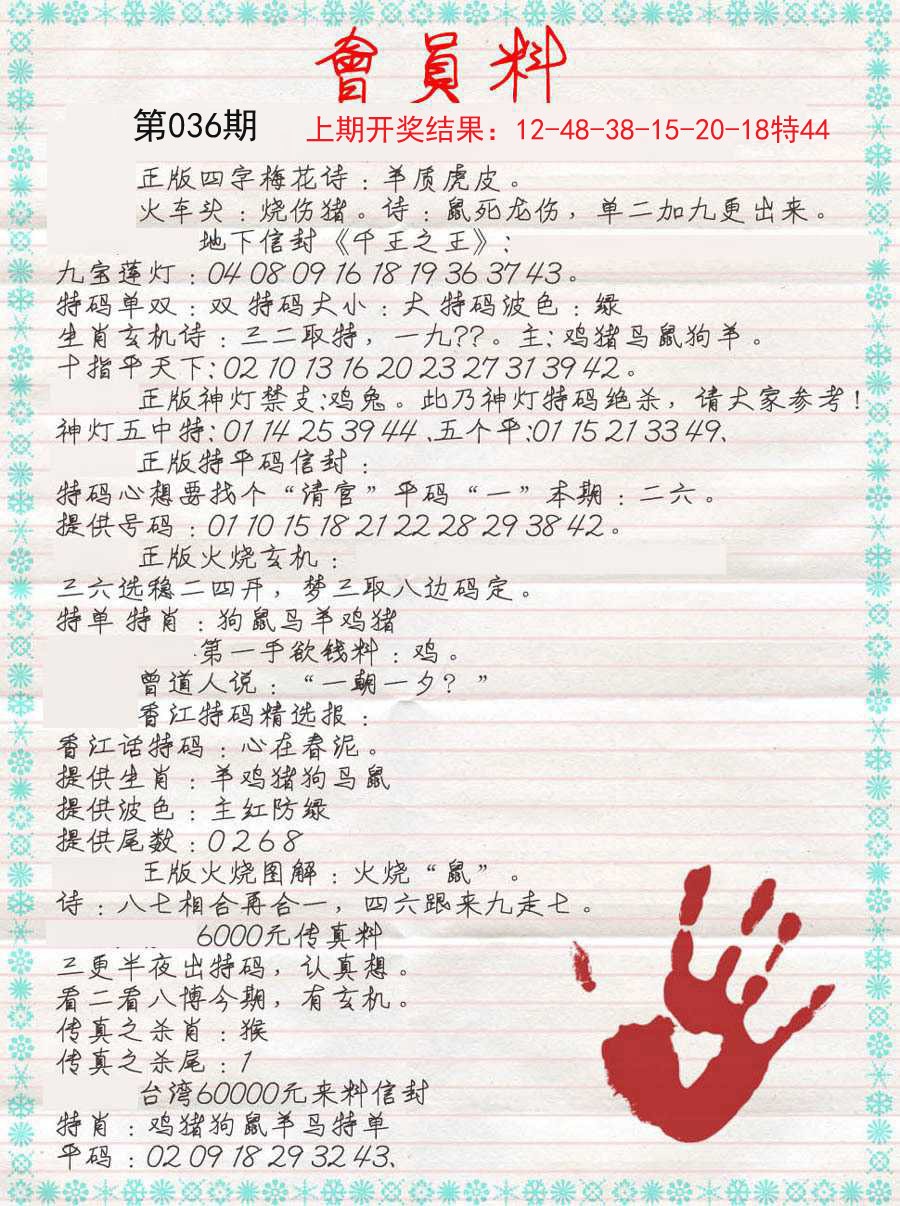 會員料
第036期 上期开奖结果：12-48-38-15-20-18特44
正版四字梅花诗：羊质虎皮。
火车头：烧伤猪。诗：鼠死龙伤，单二加九更出来。
地下信封《千王之王》：
九宝莲灯：04 08 09 16 18 19 36 37 43。
特码单双：双 特码大小：大 特码波色：绿
生肖玄机诗：三二取特，一九??。主：鸡猪马鼠狗羊。
十指平天下：02 10 13 16 20 23 27 31 39 42。
正版神灯禁支：鸡兔。此乃神灯特码绝杀，请大家参考！
神灯五中特：01 14 25 39 44、五个平：01 15 21 33 49、
正版特平码信封：
特码心想要找个“清官”平码“一”本期：二六。
提供号码：01 10 15 18 21 22 28 29 38 42。
正版火烧玄机：
三六选稳二四开，梦三取八边码定。
特单 特肖：狗鼠马羊鸡猪
第一手欲钱料：鸡。
曾道人说：“一朝一夕？”
香江特码精选报：
香江话特码：心在春泥。
提供生肖：羊鸡猪狗马鼠
提供波色：主红防绿
提供尾数：0 2 6 8
正版火烧图解：火烧“鼠”。
诗：八七相合再合一，四六跟来九走七。
6000元传真料
三更半夜出特码，认真想。
看二看八博今期，有玄机。
传真之杀肖：猴
传真之杀尾：1
台湾60000元来料信封
特肖：鸡猪狗鼠羊马特单
平码：02 09 18 29 32 43、